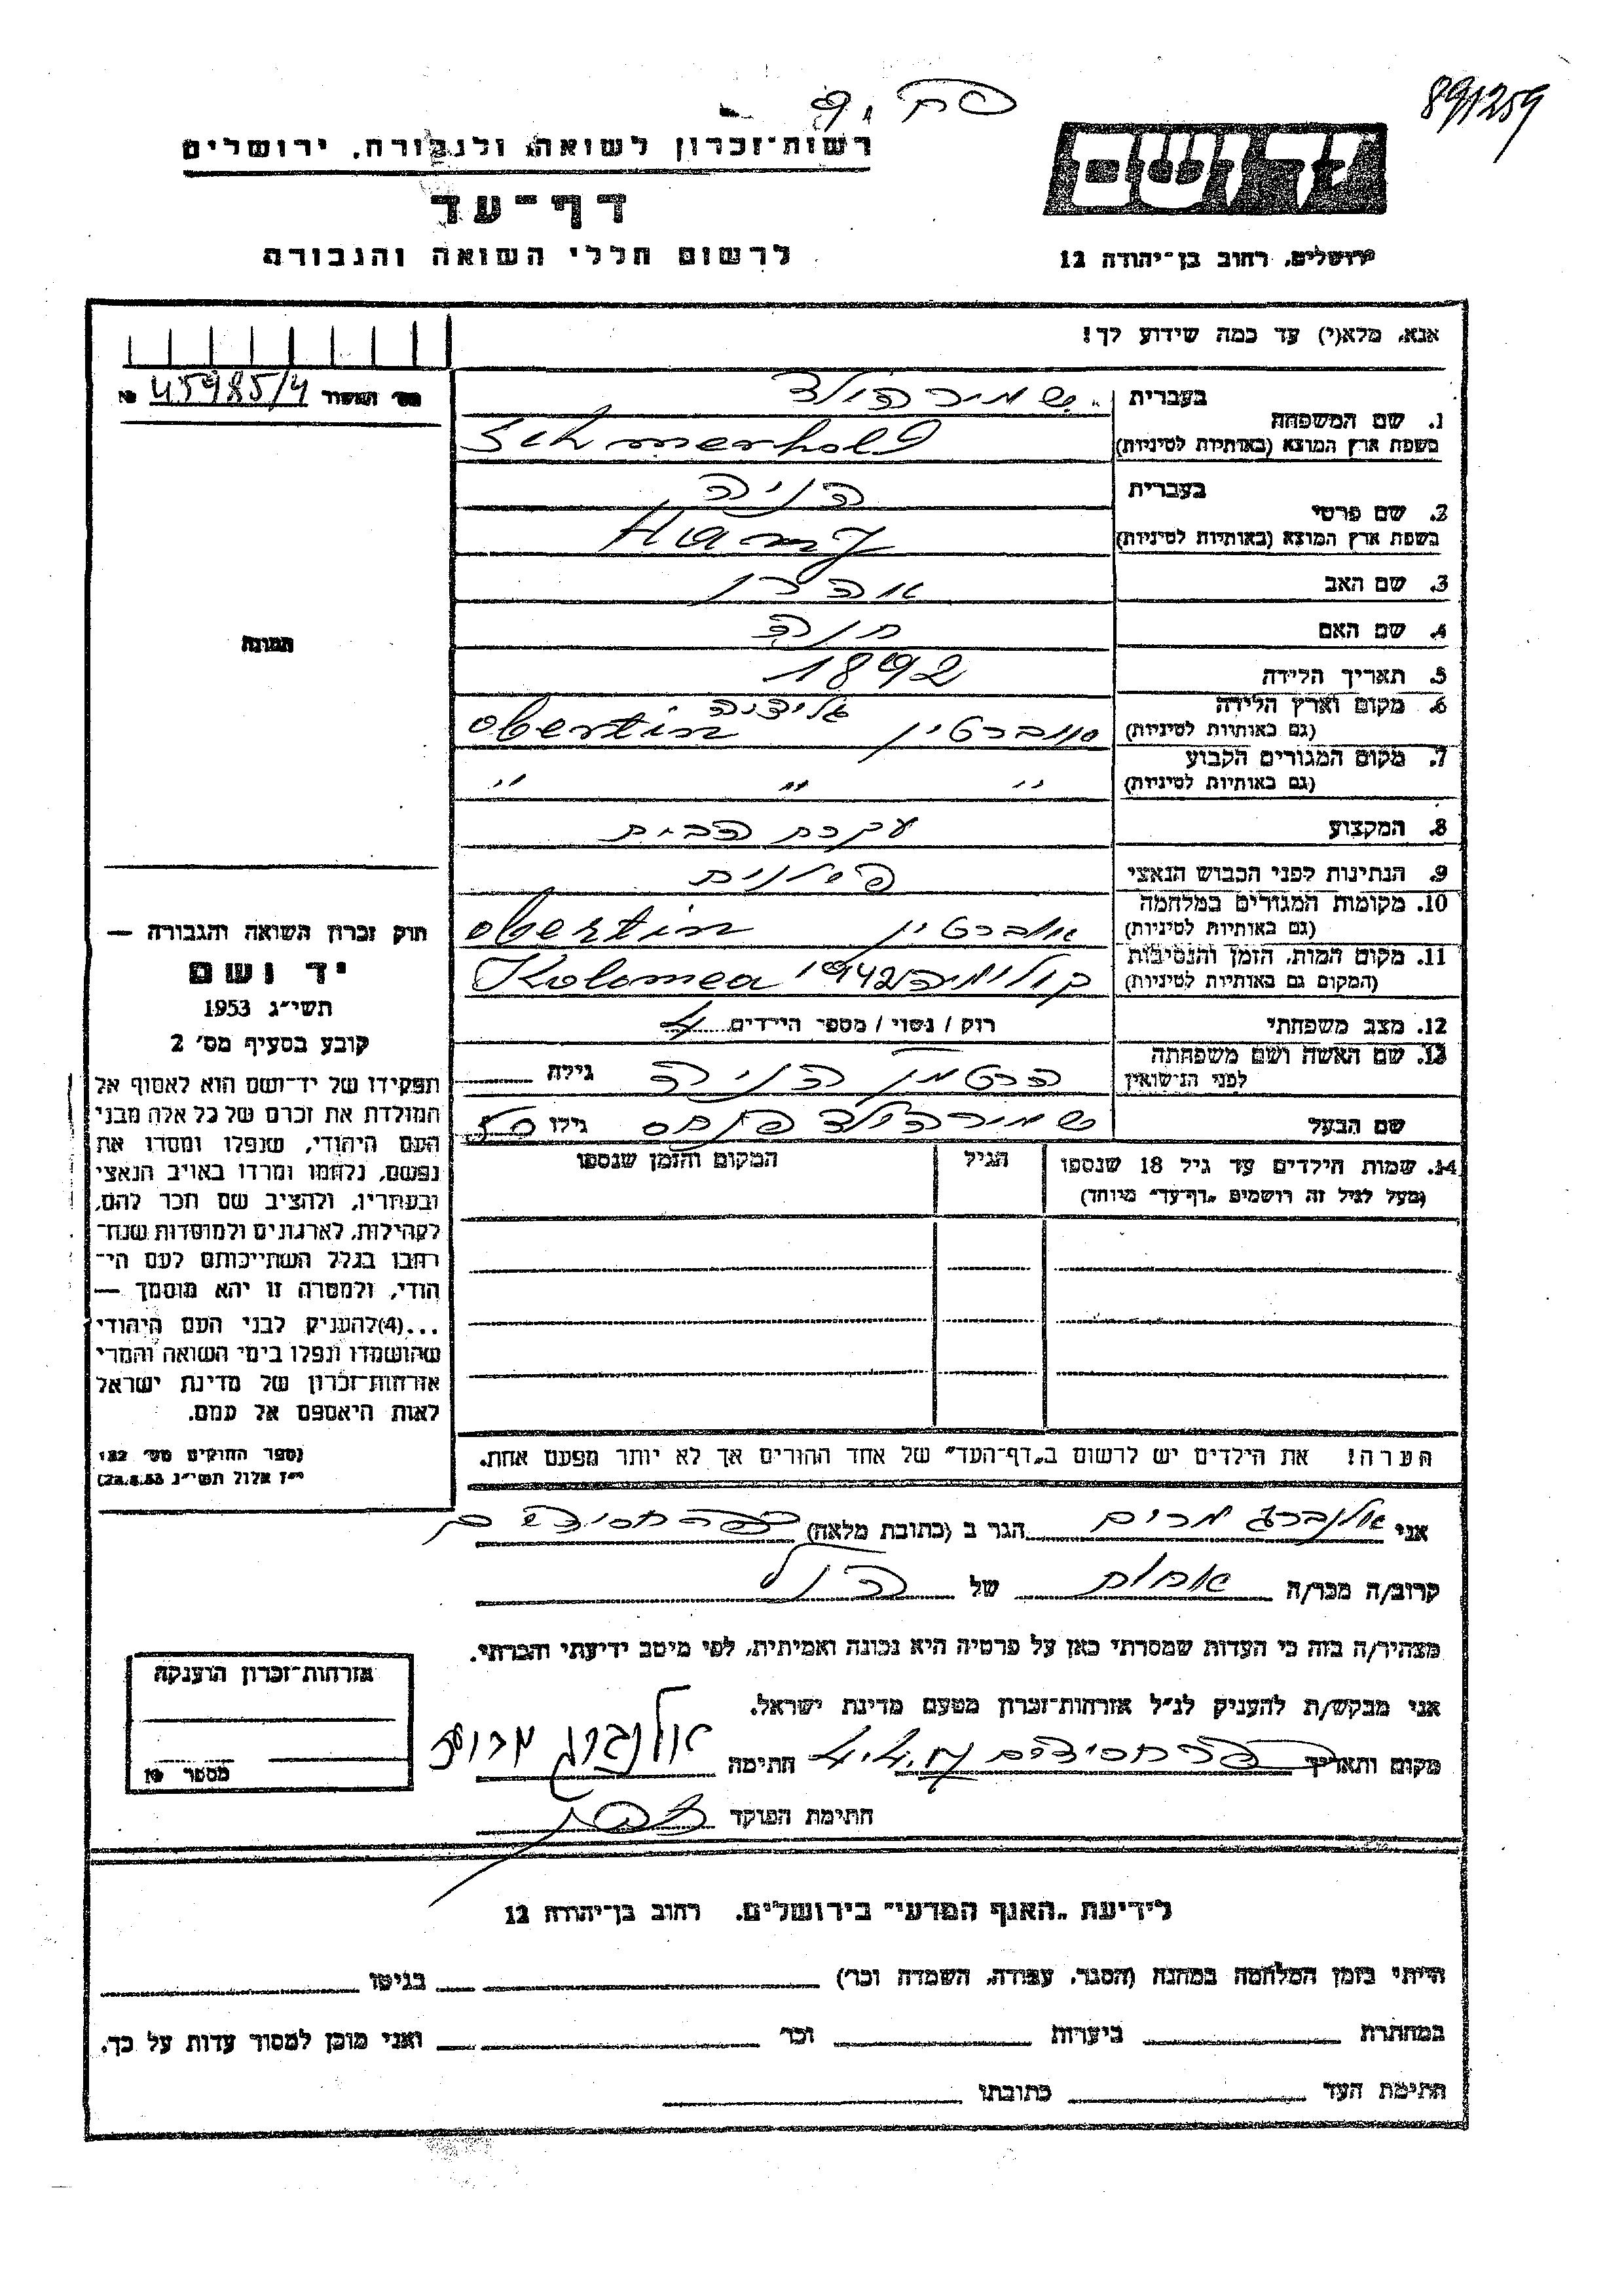 891259
ידושם
ירושלים, רחוב בן־יהודה 12
רשות־זכרון לשואה ולגבורה, ירושלים
דף־עד
לרשום חללי השואה והגבורה
אנא, מלא(י) עד כמה שידוע לך!
מס׳ תעודה № 45985/4
תמונה
1. שם המשפחה
בעברית שמירהולד
בשפת ארץ המוצא (באותיות לטיניות) Schmerhold
2. שם פרטי
בעברית הניה
בשפת ארץ המוצא (באותיות לטיניות)
3. שם האב אהרן
4. שם האם חנה
5. תאריך הלידה 1892
6. מקום וארץ הלידה (גם באותיות לטיניות) אוברטין גליציה obertin
7. מקום המגורים הקבוע (גם באותיות לטיניות) " " "
8. המקצוע עקרת הבית
9. הנתינות לפני הכבוש הנאצי פולנית
10. מקומות המגורים במלחמה (גם באותיות לטיניות) אוברטין obertin
11. מקום המות, הזמן והנסיבות (המקום גם באותיות לטיניות) קולומיה 1942 Kolomea
12. מצב משפחתי רוק / נשוי / מספר הילדים 4
13. שם האשה ושם משפחתה לפני הנישואין הרטמן הניה גילה
שם הבעל שמירהולד פנחס גילו
14. שמות הילדים עד גיל 18 שנספו הגיל המקום והזמן שנספו
(מעל לגיל זה רושמים „דף־עד” מיוחד)
הערה! את הילדים יש לרשום ב„דף־העד” של אחד ההורים אך לא יותר מפעם אחת.
חוק זכרון השואה והגבורה —
יד ושם
תשי״ג 1953
קובע בסעיף מס׳ 2
תפקידו של יד־ושם הוא לאסוף אל
המולדת את זכרם של כל אלה מבני
העם היהודי, שנפלו ומסרו את
נפשם, נלחמו ומרדו באויב הנאצי
ובעוזריו, ולהציב שם וזכר להם,
לקהילות, לארגונים ולמוסדות שנח־
רבו בגלל השתייכותם לעם הי־
הודי, ולמטרה זו יהא מוסמך —
...(4)להעניק לבני העם היהודי
שהושמדו ונפלו בימי השואה והמרי
אזרחות־זכרון של מדינת ישראל
לאות היאספם אל עמם.
(ספר החוקים מס׳ 132
י״ז אלול תשי״ג 28.8.53)
אני אלנברג מרים הגר ב (כתובת מלאה) כפר חסידים
קרוב/ה מכר/ה אחות של
מצהיר/ה בזה כי העדות שמסרתי כאן על פרטיה היא נכונה ואמיתית, לפי מיטב ידיעתי והכרתי.
אני מבקש/ת להעניק לנ״ל אזרחות־זכרון מטעם מדינת ישראל.
מקום ותאריך כפר חסידים חתימה אלנברג מרים
חתימת הפוקד
אזרחות־זכרון הוענקה
מספר №
לידיעת „האגף המדעי” בירושלים, רחוב בן־יהודה 12
הייתי בזמן המלחמה במחנה (הסגר, עבודה, השמדה וכו׳) בגיטו
במחתרת ביערות וכו׳ ואני מוכן למסור עדות על כך.
חתימת העד כתובתו